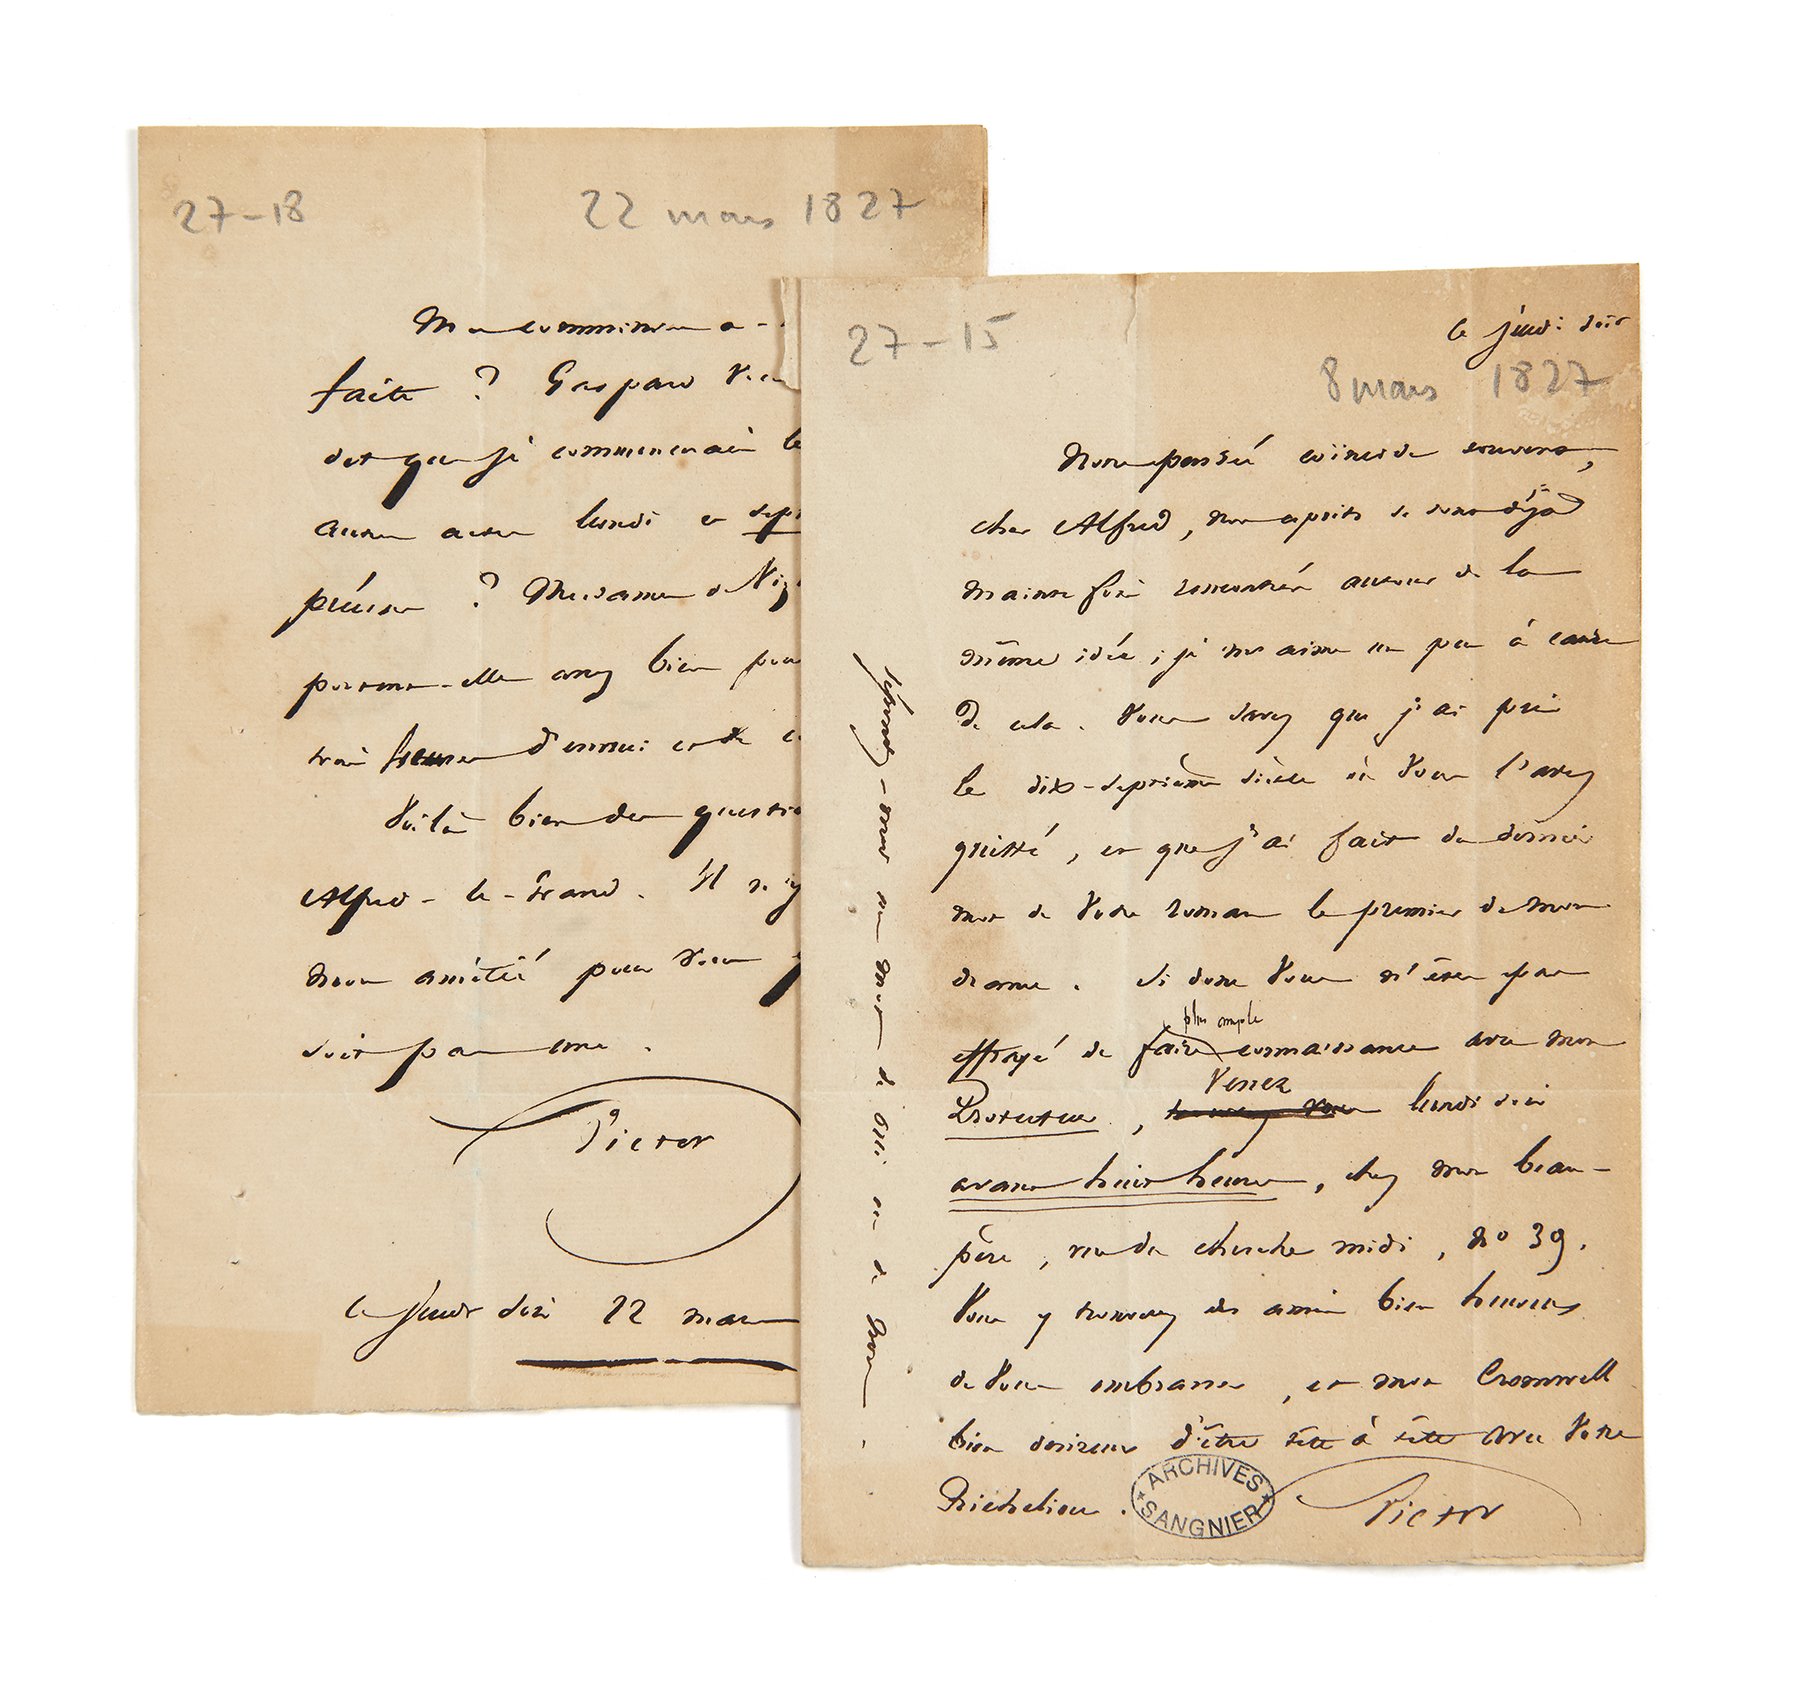 27-18
22 mars 1827
Ma commission a-
faite ? Gaspard vous
dit que je commencerais le
lundi et sept
précises ? Madame de Vig
portera-elle assez bien pour
trois heures d'ennui et de
Voilà bien des questio
Alfred-le-Grand. Il n'y
mon amitié pour vous
soit pas une.
Victor
ce jeudi soir 22 mars
27-15
ce jeudi soir
8 mars 1827
Notre pensée coïncide souvent,
cher Alfred, nos esprits se sont déjà
mainte fois rencontrés autour de la
même idée ; je m'en aime un peu à cause
de cela. Vous savez que j'ai pris
le dix-septième siècle où vous l'avez
quitté, et que j'ai fait du dernier
mot de votre roman le premier de mon
drame. Si donc vous n'êtes pas
plus ample
effrayé de faire connaissance avec mon
Venez
Protecteur, lundi soir
avant huit heures, chez mon beau-
père, rue du cherche midi, no 39.
Vous y trouverez des amis bien heureux
de vous embrasser, et mon Cromwell
bien désireux d'être tête à tête avec votre
Richelieu.
Victor
ARCHIVES
SANGNIER
Répondez-moi un mot de oui ou de non.